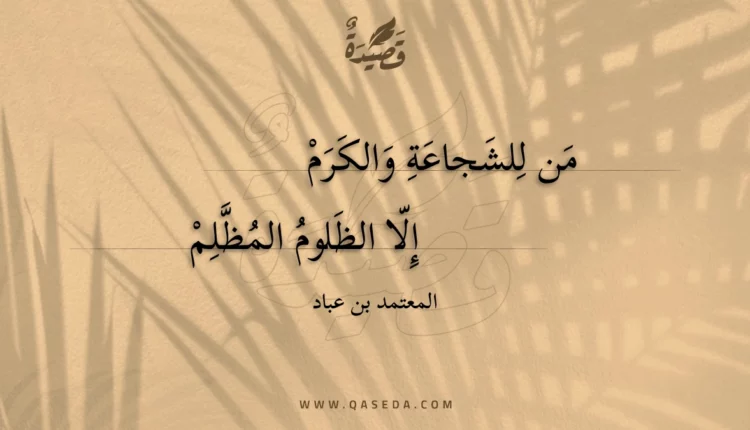 قَصِيْدَةٌ
مَن لِلشَجاعَةِ وَالكَرَمْ
إِلّا الظَلومُ المُظَّلِمْ
المعتمد بن عباد
WWW.QASEDA.COM